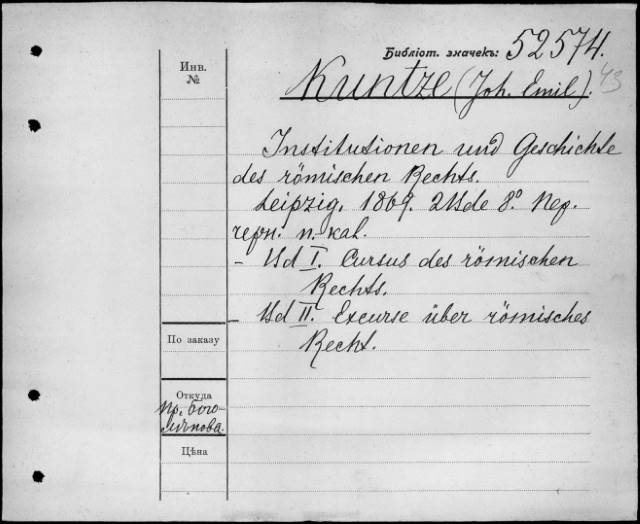 Библіот. значекъ: 52574.
Инв.
№
Kuntze (Joh. Emil). 43
Institutionen und Geschichte
des römischen Rechts.
Leipzig, 1869. 2 Bde 8º. Пер.
черн. п. кал.
– Bd I. Cursus des römischen
Rechts.
– Bd II. Excurse über römisches
Recht.
По заказу
Откуда
Пр. Бого-
лѣпова.
Цѣна